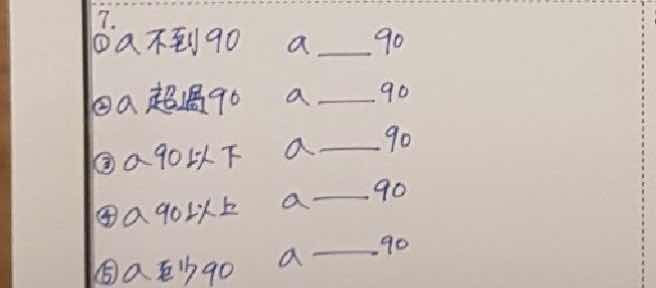 7.
①a不到90 a ___ 90
②a超過90 a ___ 90
③a90以下 a ___ 90
④a90以上 a ___ 90
⑤a至少90 a ___ 90